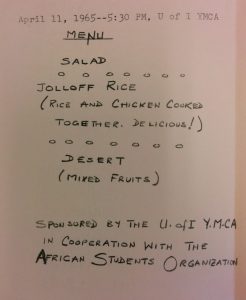 April 11, 1965--5:30 PM, U of I YMCA
MENU
SALAD
o o o o o o o
JOLLOFF RICE
(RICE AND CHICKEN COOKED
TOGETHER. DELICIOUS!)
o o o o o o o
DESERT
(MIXED FRUITS)
SPONSORED BY THE U. of I Y.M.CA
IN COOPERATION WITH THE
AFRICAN STUDENTS ORGANIZATION